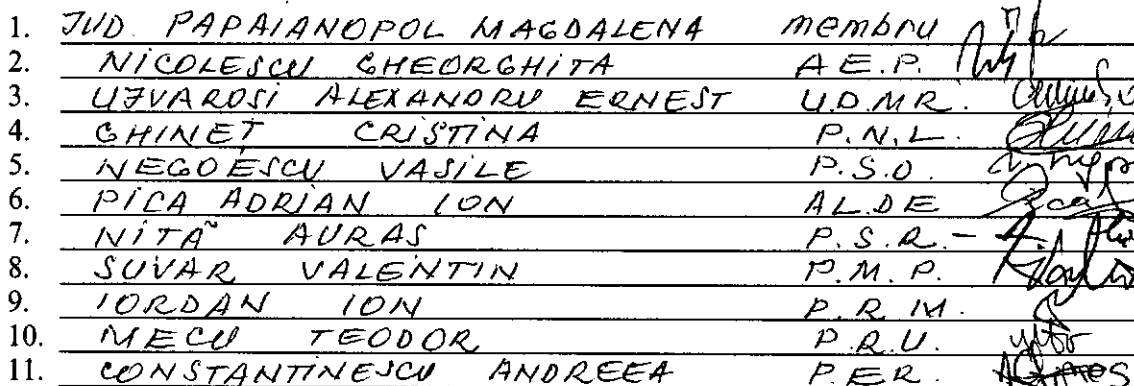 1. JUD. PAPAIANOPOL MAGDALENA membru
2. NICOLESCU GHEORGHITA A E.P.
3. UJVAROSI ALEXANDRU ERNEST U.D.M.R.
4. GHINEȚ CRISTINA P.N.L.
5. NEGOESCU VASILE P.S.D.
6. PICA ADRIAN ION ALDE
7. NIȚĂ AURAS P.S.R.
8. SUVAR VALENTIN P.M.P.
9. IORDAN ION P.R.M.
10. MECU TEODOR P.R.U.
11. CONSTANTINESCU ANDREEA P.E.R.